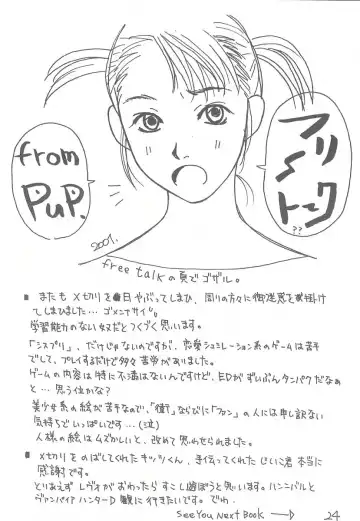 from
PuP.
フリ
〜
トーク
??
2001.
free talkの頁でゴザル。
■ またも〆切りを●日やぶってしまひ、周りの方々に御迷惑を掛け
てしまひました…ゴメンナサイ。
学習能力のない奴だとつくづく思います。
「シスプリ」、だけじゃないんですが、恋愛シュミレーション系のゲームは苦手
でして、プレイするだけで多々苦労がありました。
ゲームの内容は特に不満はないんですけど、EDがずいぶんタンパクだなぁ
と…思う位かな?
美少女系の絵が苦手なので、ならびに「ファン」の人には申し訳ない
気持ちでいっぱいです…(泣)
人様の絵はムズかしいと、改めて思わせられました。
■ 〆切りをのばしてくれたキッシくん、手伝ってくれたじいこ君本当に
感謝です。
とりあえずレヴォがおわったらすこし遊ぼうと思います。ハンニバルと
ヴァンパイアハンターD観に行きたいです。でわ。
See You Next Book →
24